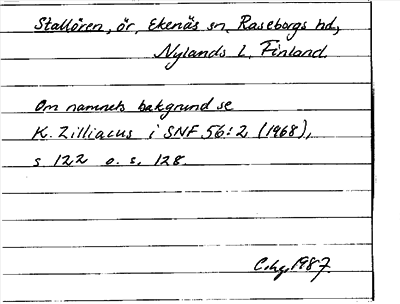 Stallören, ör, Ekenäs sn, Raseborgs hd,
Nylands l, Finland.
Om namnets bakgrund se
K. Zilliacus i SNF 56:2 (1968),
s. 122 o. s. 128.
C.hg. 1987